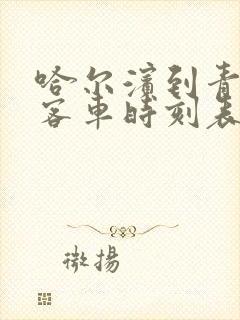 哈尔滨到青
客车时刻表
微扬